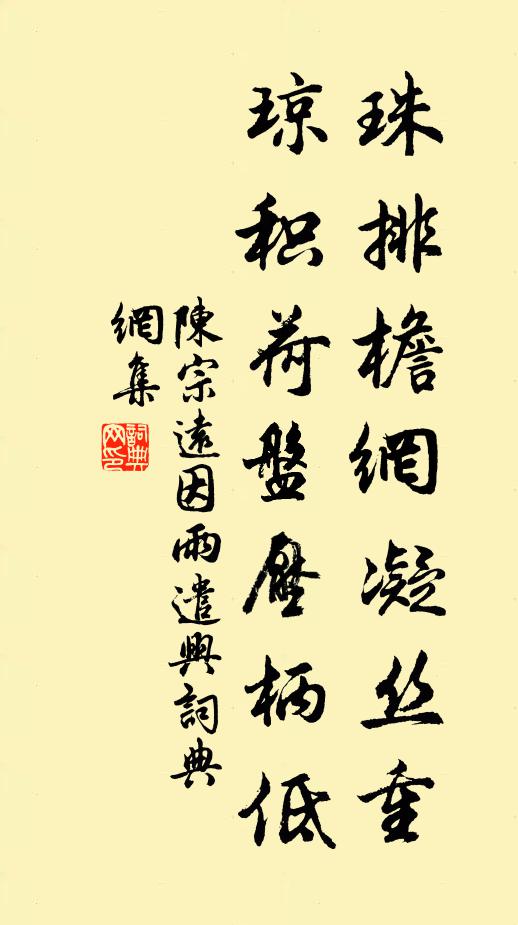 珠排檐網凝丝重
琼积荷盤压柄低
陳宗遠因雨遣興詞典
網集
詞典
网印